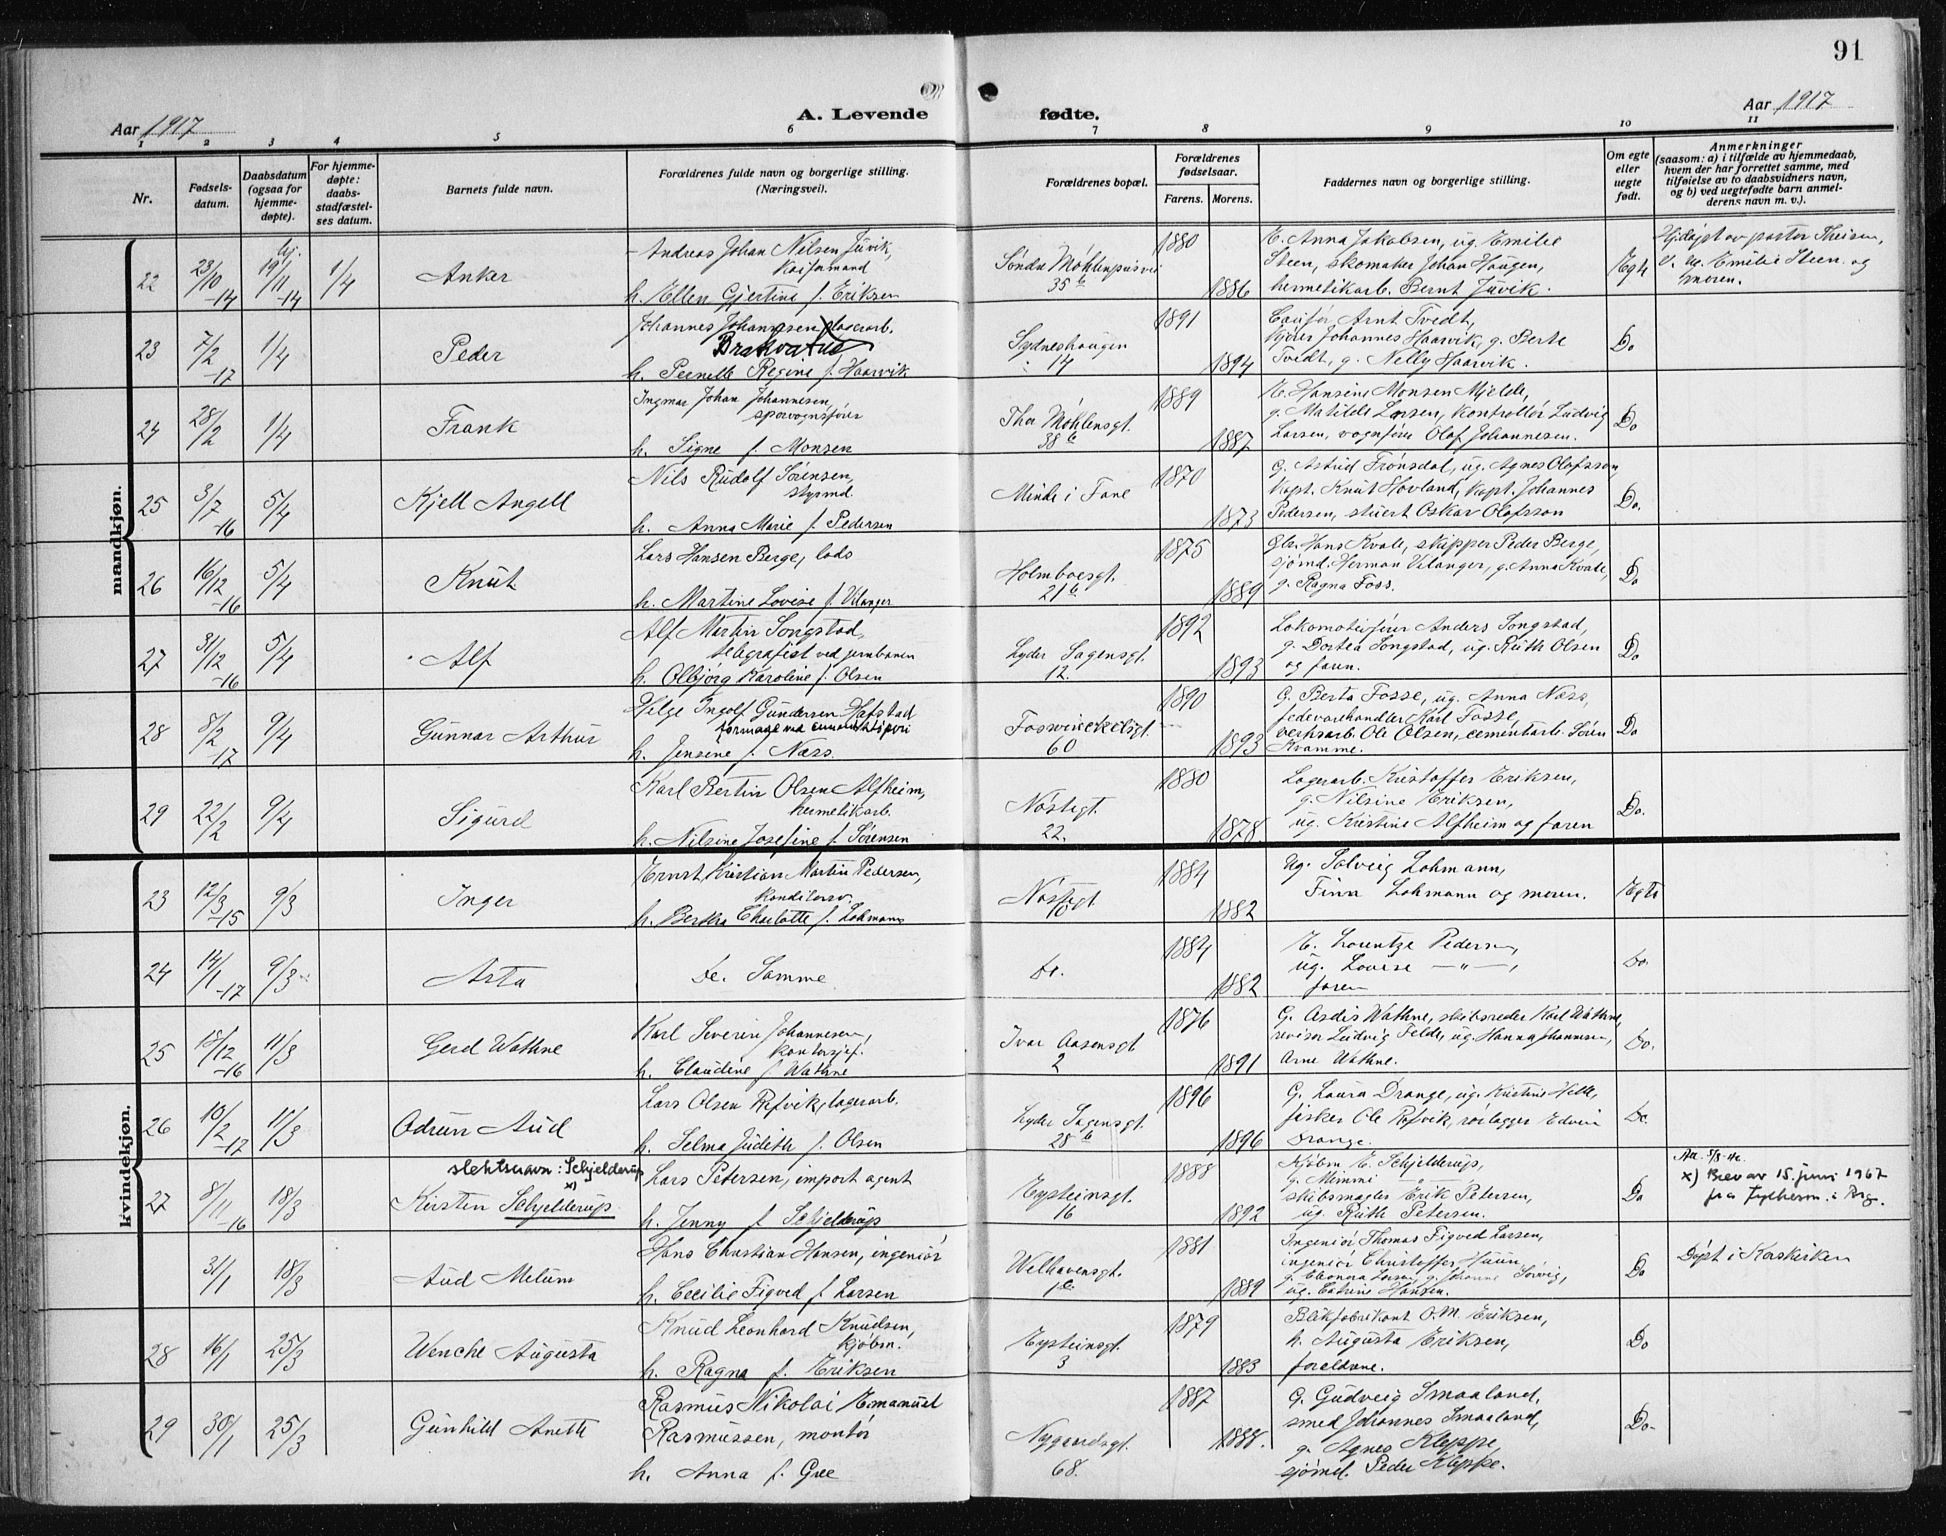 91
Aar 1917
A. Levende
fødte.
Aar 1917
1 2 3 4 5 6 7 8 9 10 11
Nr.
Fødsels-
datum.
Daabsdatum
(ogsaa for
hjemme-
døpte).
For hjemme-
døpte:
daabs-
stadfæstel-
ses datum.
Barnets fulde navn.
Forældrenes fulde navn og borgerlige stilling.
(Næringsvei).
Forældrenes bopæl.
Forældrenes
fødselsaar.
Farens. Morens.
Faddernes navn og borgerlige stilling.
Om egte
eller
uegte
født.
Anmerkninger
(saasom: a) i tilfælde av hjemmedaab,
hvem der har forrettet samme, med
tilføielse av to daabsvidners navn,
og b) ved uegtefødte barn anmel-
derens navn m. v.).
mandkjøn.
22 23/10 -14 hj. 19/11 -14 1/4 Anker
Andreas Johan Nilsen Juvik,
h. Ellen Gjertine f. Eriksen
35 b
1880 1886
E. Anna Jakobsen, ug. Emilie
Steen, skomaker Johan Haugen,
hermetikarb. Bernt Juvik.
Egte
Hjdøpt av pastor Theisen,
v. ug. Emilie Steen og
moren.
23 7/2 -17 1/4 Peder
Johannes Johannesen, lagerarb.
h. Pernelle Regine f. Haarvik
Sydneshaugen
14
1891 1894
Arnt Tvedt,
Johannes Haarvik, g. Berte
Tvedt, g. Nelly Haarvik.
Do
24 28/2 1/4 Frank
Ingmar Johan Johannesen,
sporvognsfører
h. Signe f. Monsen
Thor Møhlensgt.
38 b
1889 1887
E. Hansine Monsen Mjelde,
g. Matilde Larsen, kontrollør Ludvig
Larsen, vognfører Olaf Johannesen.
Do
25 3/7 -16 5/4 Kjell Angell
Nils Rudolf Sørensen,
styrmd.
h. Anna Marie f. Pedersen
Minde i Fane
1870 1873
G. Astrid Trønsdal, ug. Agnes Olafsson,
kapt. Knut Hovland, kapt. Johannes
Pedersen, stuert Oskar Olafsson
Do.
26 16/12 -16 5/4 Knut
Lars Hansen Berge, lods
h. Martine Lovise f. Vilanger
Holmboesgt.
21 b
1875 1889
Gbr. Hans Kvale, skipper Peder Berge,
sjømd. Herman Vilanger, g. Anna Kvale,
g. Ragna Foss.
Do
27 31/12 -16 5/4 Alf
Alf Martin Songstad,
telegrafist ved jernbanen
h. Olbjørg Karoline f. Olsen
Lyder Sagensgt.
12.
1892 1893
Lokomotivfører Anders Songstad,
g. Dortea Songstad, ug. Ruth Olsen
og faren.
Do
28 8/2 -17 9/4 Gunnar Arthur
Helge Ingolf Gundersen Hafstad
h. Jensine f. Næss.
Fosswinckelsgt.
60
1890 1893
G. Berta Fosse, ug. Anna Næss,
fedevarehandler Karl Fosse,
verksarb. Ole Olsen, cementarb. Søren
Kvamme.
Do
29 22/2 9/4 Sigurd
Karl Bertin Olsen Alfheim,
hermetikarb.
h. Nilsine Josefine f. Sørensen
Nøstegt.
22.
1880 1878
Lagerarb. Kristoffer Eriksen,
g. Nilsine Eriksen,
ug. Kristine Alfheim og faren
Do.
kvindekjøn.
23 12/3 -15 9/3 Inger
Ernst Kristian Martin Pedersen,
h. Bertha Charlotte f. Lohmann
Nøstegt.
10
1884 1882
Ug. Solveig Lohmann,
Finn Lohmann og moren.
Egte
24 14/1 -17 9/3 Asta
de. Samme
de.
1884 1882
E. Lorentze Pedersen,
ug. Lovise —„—,
faren
Do.
25 18/12 -16 11/3 Gerd Wathne
Karl Severin Johannesen,
kontorsjef.
h. Claudine f. Wathne
Ivar Aasensgt.
2
1876 1891
G. Asdis Wathne, skibsreder Karl Wathne,
revisor Ludvig Felde, ug. Hanna Johannesen,
Arne Wathne.
Do.
26 10/2 -17 11/3 Odrun Aud
Lars Olsen Refvik, lagerarb.
h. Selma Judith f. Olsen
Lyder Sagensgt.
28 b
1896 1896
G. Laura Drange, ug. Kristine Helle,
fisker Ole Refvik, rørlegger Edvin
Drange.
Do.
slektsnavn: Schjelderup
x)
27 8/11 -16 18/3 Kirsten Schjelderup
Lars Petersen, import agent
h. Jenny f. Schjelderup
Eysteinsgt.
16
1888 1892
Kjøbm. E. Schjelderup,
g. Mimmi —„—
skibsmægler Erik Petersen,
ug. Ruth Petersen.
Do
x) Brev av 15. juni 1967
fra
31/1 18/3 Aud Melum
Hans Christian Hansen, ingeniør
h. Cecilie Figved f. Larsen
Welhavensgt.
1881 1889
Ingeniør Thomas Figved Larsen,
ingeniør Christoffer Huun,
g. Eleonna Larsen, g. Johanne Sørvig,
ug. Catrine Hansen.
Do
Døpt i Korskirken
28 16/1 25/3 Wenche Augusta
Knud Leonhard Knudsen,
kjøbm.
h. Ragna f. Eriksen
Eysteinsgt.
3
1879 1883
Blikfabrikant O.M. Eriksen,
h. Augusta Eriksen,
foreldrene.
Do
29 30/1 25/3 Gunhild Anette
Rasmus Nikolai Emanuel
Rasmussen, montør
h. Anna f. Gree
Nygaardsgt.
68.
1887 1888.
G. Gudveig Smaaland,
smed Johannes Smaaland,
g. Agnes Kleppe,
sjømd. Peder Kleppe.
Do